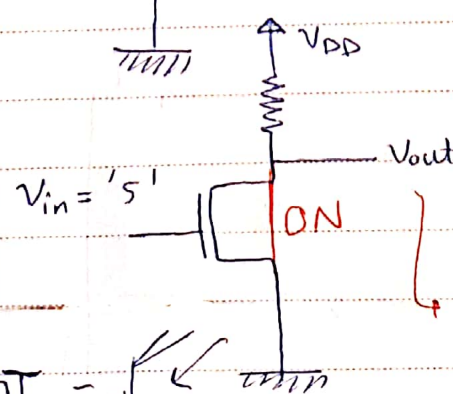 VDD
Vout
Vin = '5'
ON